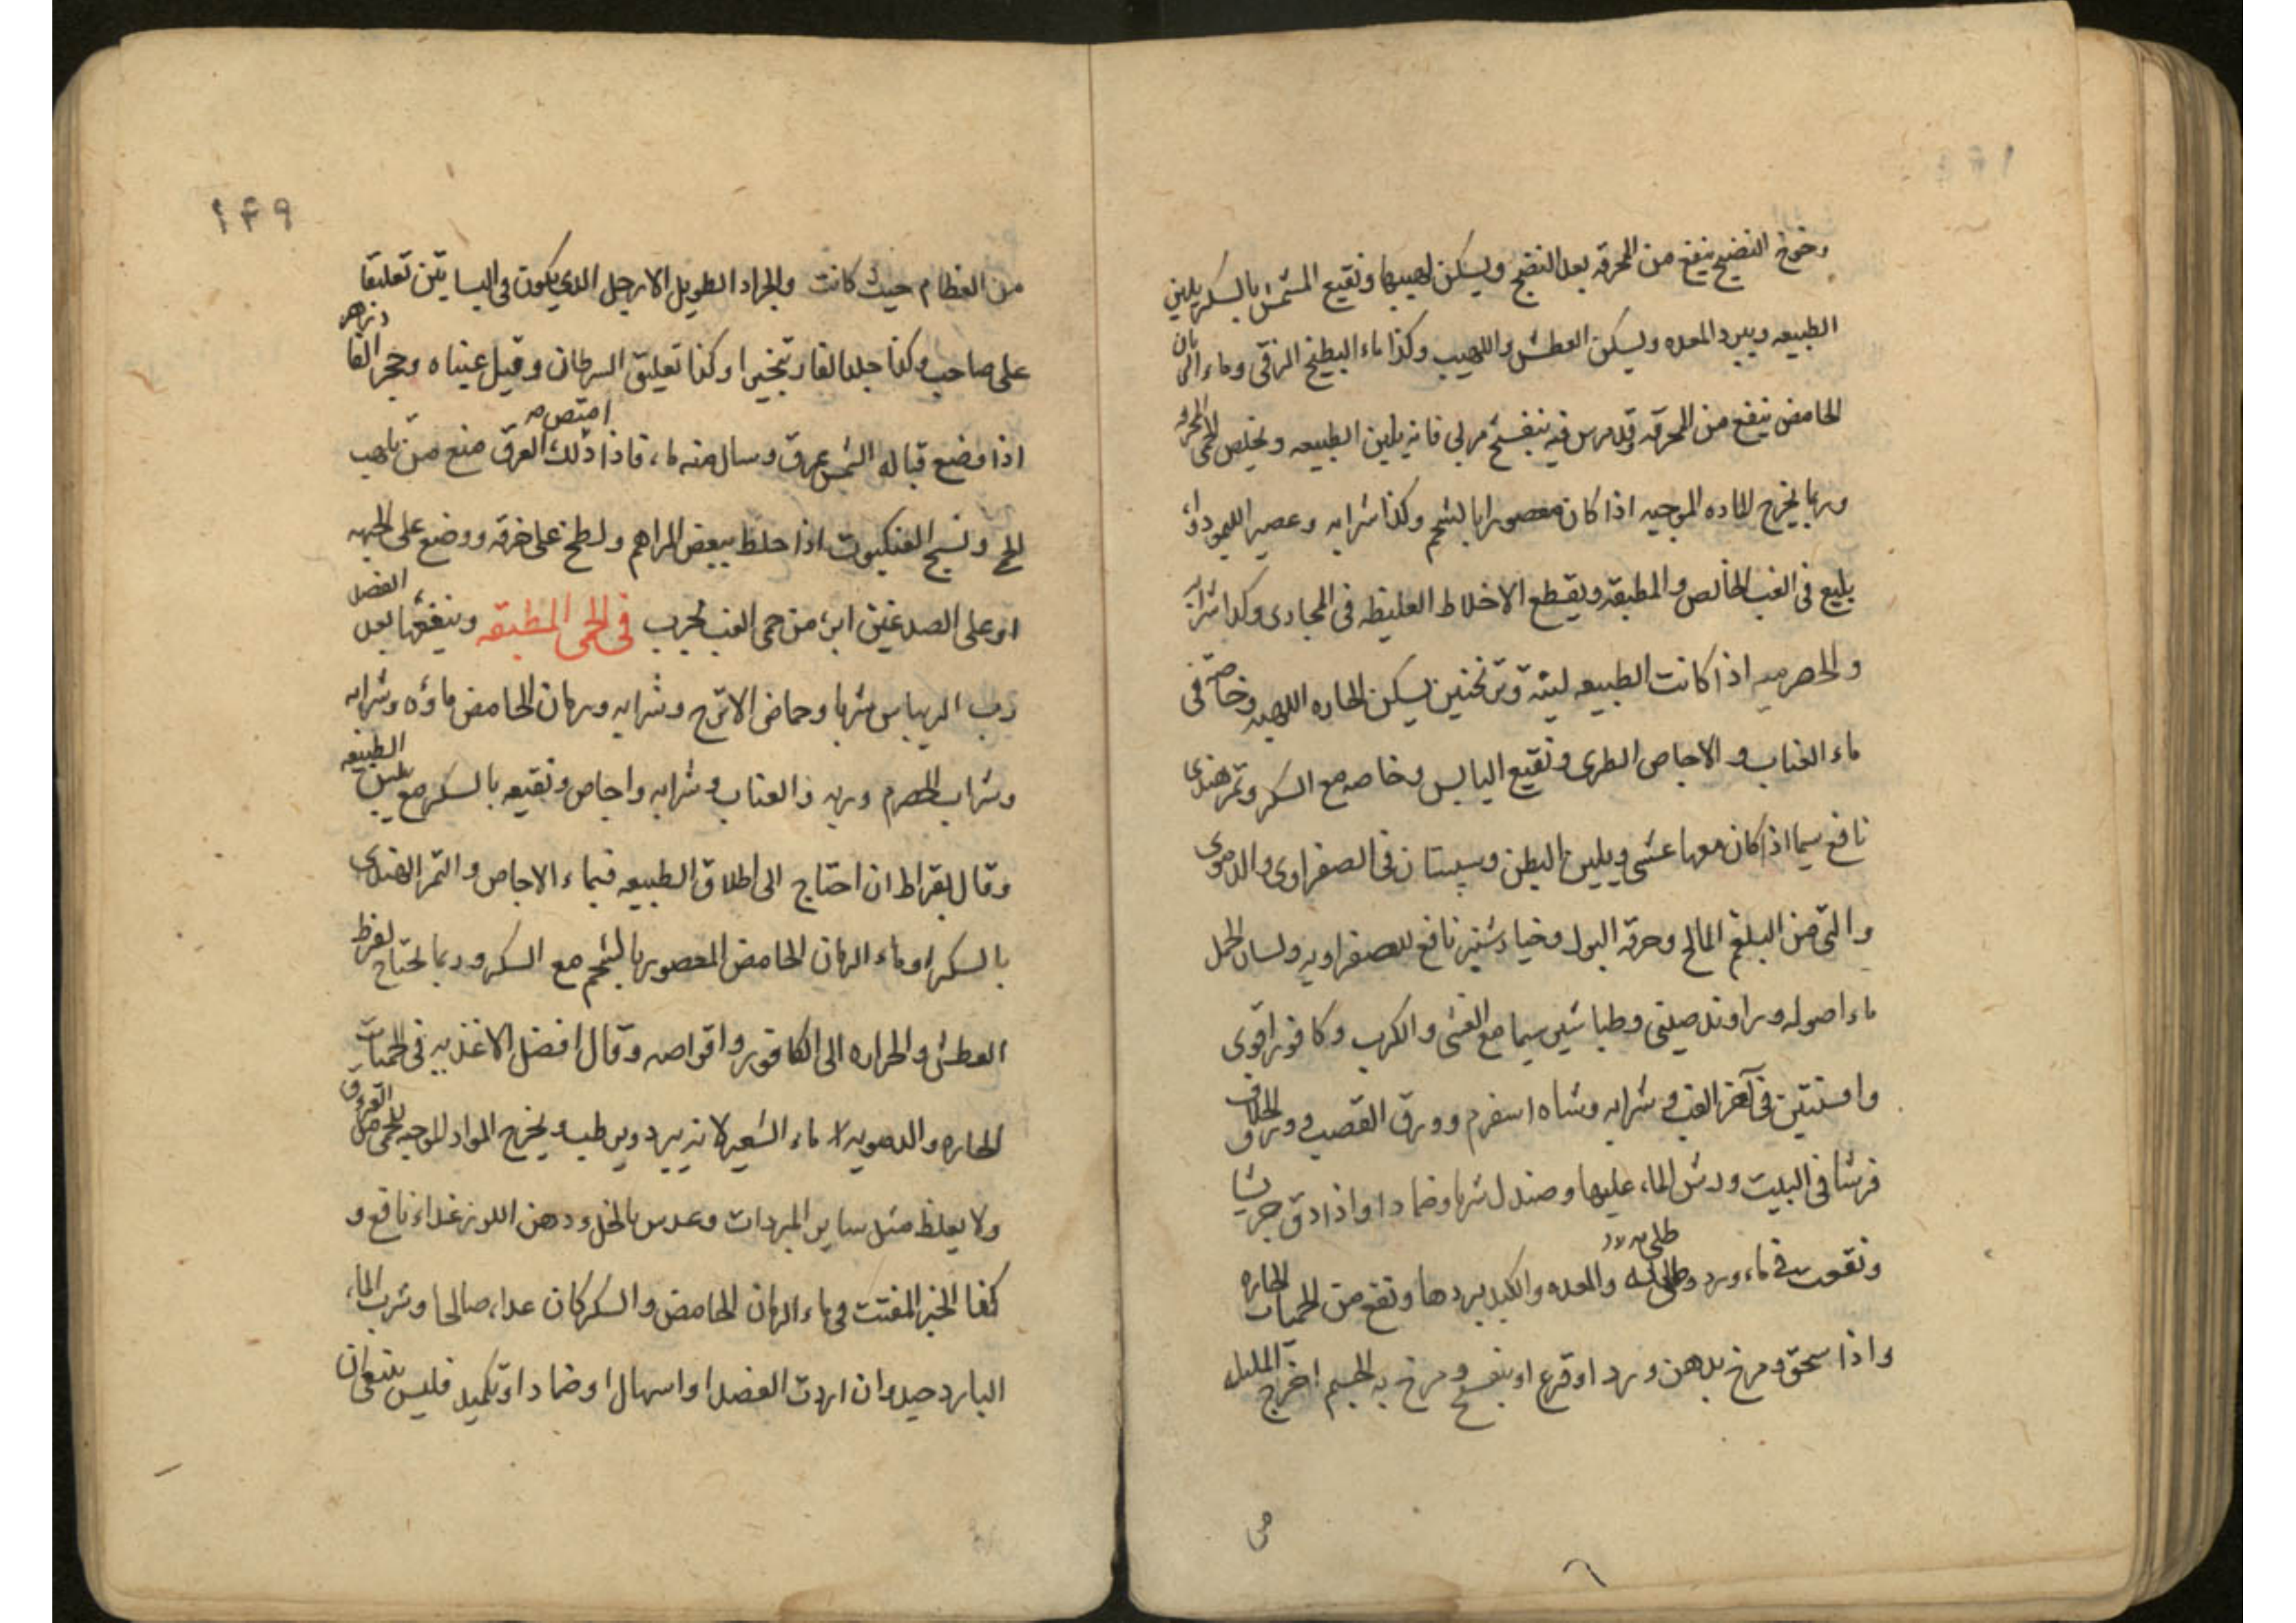 وخوخ النضيج ينفع من المحرقه بعد النضج ويسكن لهيبها ونقيع المشمش بالسكر يلين
الطبيعه ويبرد المعده ويسكن العطش واللهيب وكذا ماء البطيخ الزقى وماء الرمان
الحامض ينفع من المحرقه وقد مرس فيه بنفسج مربى فانه يلين الطبيعه ويخلص الحمى المحرقه
وربما يخرج الماده الموجبه اذا كان معصورا بالشحم وكذا شرابه وعصير الليمو دواء
بليغ فى الغب الخالص والمطبقه ويقطع الاخلاط الغليظه فى المجارى وكذا شرابه
والحصرميه اذا كانت الطبيعه لينة وترنجبين يسكن الحاره اللهبيه وخاصة فى
ماء العناب والاجاص الطرى ونقيع اليابس وخاصه مع السكر وتمر هندى
نافع سيما اذا كان معها غشى ويلين البطن وسپستان فى الصفراوى والدموى
والتى من البلغم المالح وحرقه البول وخيارشنبر نافع للصفراويه ولسان الحمل
ماء اصوله وراوند صينى وطباشير سيما مع الغشى والكرب وكافور اقوى
وافسنتين فى آخر الغب وشرابه وشاه اسفرم وورق القصب وورق الخلاف
فرشا فى البيت ورش الماء عليها وصندل شربا وضمادا واذا دق جريشا
ونقعت فى ماء ورد وطلى به والمعده والكبد بردها ونفع من الحميات الحاره
طلى
واذا سحق ومرخ بدهن ورد او قرع او بنفسج ومرخ به الجسم اخرج المليل
من
١٤٩
من العظام حيث كانت والجراد الطويل الارجل الذى يكون فى البساتين تعليقا
على صاحبه وكذا جلد الفار تبخيرا وكذا تعليق السرطان وقيل عيناه وحجر القا وزهر
اذا وضع قباله الشمس عرق وسال منه ماء فاذا امتص ذلك العرق منع من ناهب
الحمى ونسج العنكبوت اذا خلط ببعض المراهم ولطخ على خرقه ووضع على الجبهه
او على الصدغين ابرء من حمى الغب مجرب فى الحمى المطبقه وينفعها بعد الفصد
رب الريباس شربا وحماض الاترج وشرابه ورمان الحامض ماؤه وشرابه
وشراب الحصرم وربه والعناب وشرابه واجاص ونقيعه بالسكر مع يبس الطبيعه
وقال بقراط ان احتاج الى اطلاق الطبيعه فبماء الاجاص والتمر الهندى
بالسكر او ماء الرمان الحامض المعصور بالشحم مع السكر وربما يحتاج لفرط
العطش والحراره الى الكافور واقراصه وقال افضل الاغذيه فى الحميات
الحاره والدمويه لا ماء الشعير لانه يبرد ويرطب ويخرج المواد الموجبه للحمى من العروق
ولا يغلظ مثل ساير المبردات وعدس بالخل ودهن اللوز غداء نافع و
كذا الخبز المفتت فى ماء الرمان الحامض والسكر كان عداء صالحا وشرب الماء
البارد جيد وان اردت الفصد او اسهال او ضمادا وتكميد فليس ينبغى ان